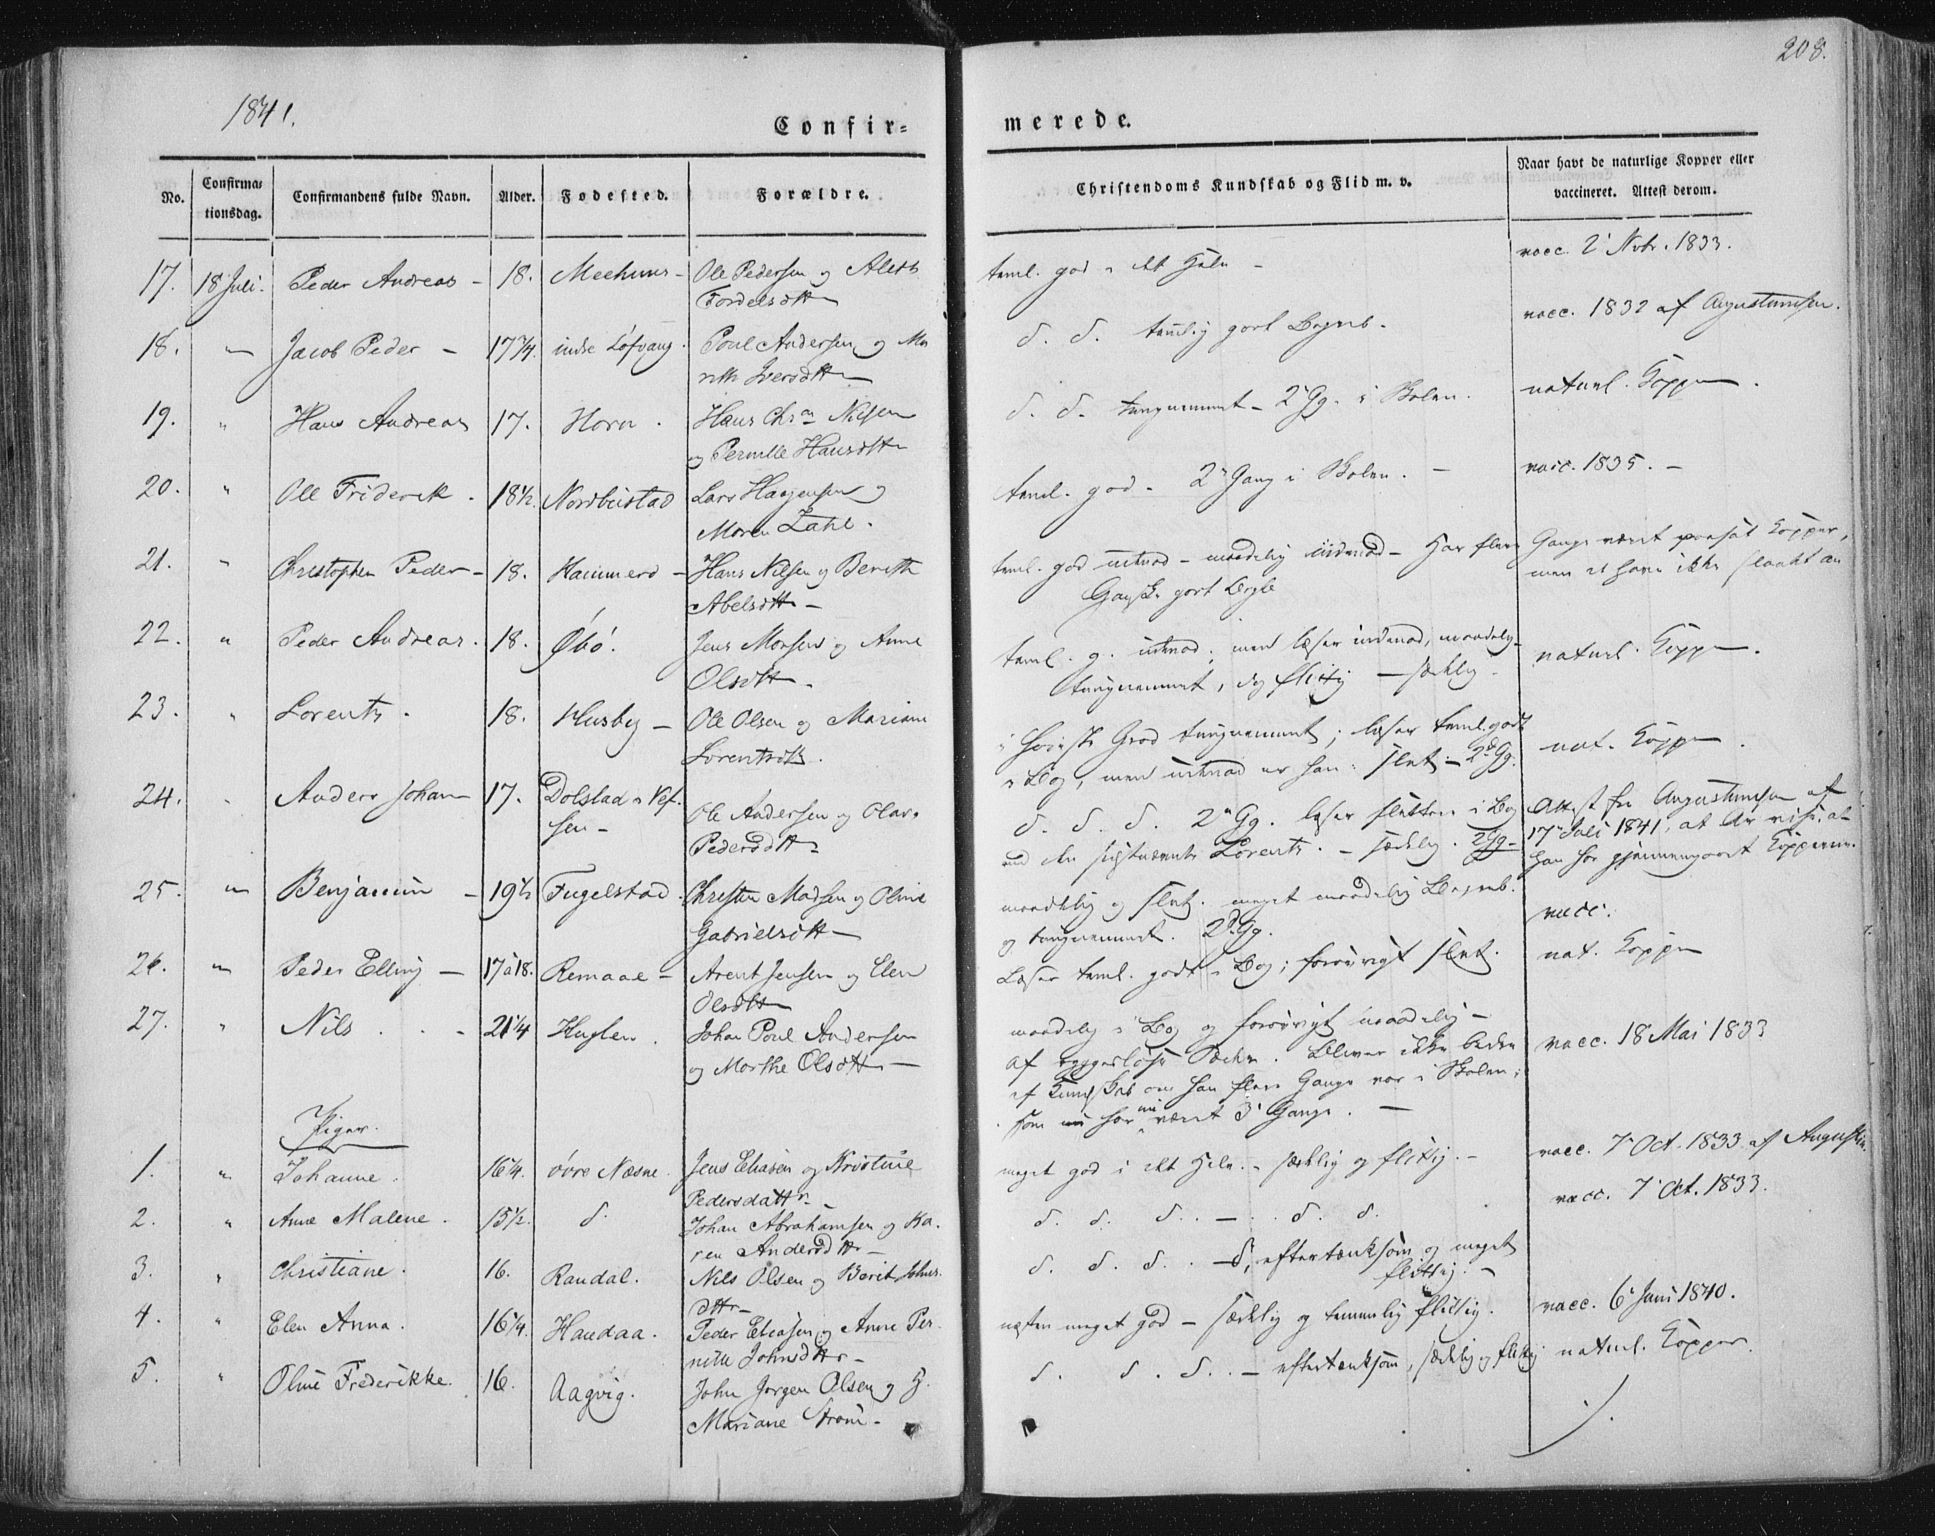 208.
1841.
Confir=
merede.
No.
Confirma=
tionsdag.
Confirmandens fulde Navn.
Alder.
Fødested.
Forældre.
Christendoms Kundskab og Flid m. v.
Naar havt de naturlige Kopper eller
vaccineret. Attest derom.
17. 18 Juli. Peder Andreas - 18. Ole Pedersen og Aleth
teml. god i det Hele - vacc. 2' Nvbr. 1833.
18. " Jacob Peder - 17 3/4 indre Løfvang. Poul Andersen og Ma
reth Iversdttr
d. d. temlig godt Begreb. vacc. 1832 af Augustinusen.
19. " Hans Andreas 17. Horn. Hans Chr. Nilsen
og Pernille Hansdttr
d. d. tungnemmet - 2' Gg. i Skolen. naturl. Kopper.
20. " Ole Friderik. 18 1/2 Nordbustad Lars Haagensen og
Maren Zahl.
teml. god - 2' Gang i Skolen. - vacc. 1835. -
21. " Christopher Peder - 18. Hammerø - Hans Nilsen og Bereth
Abelsdttr -
teml. god udenad - maadelig indenad - Har flere Gange været paasat Kopper,
Ganske godt men de have ikke slaaet an
22. " Peder Andreas. 18. Øbø. Jens Monsen og Anne
Olsdttr.
teml. g. udenad, men læser indenad maadelig
tungnemmet, dog flittig - sædelig. naturl. Kopper.
23. " Lorents. 18. Husby - Ole Olsen og Mariane
Lorentsdttr.
i høieste Grad tungnemmet; læser teml. godt
i Bog, men udenad er han slet - 2d. Gg. nat. Kopper.
24. " Anders Johan 17. Dolstad i Vef-
sen - Ole Andersen og Olava
Pedersdttr
d. d. d. 2' Gg. læser slettere i Bog
end den sidstnævnte Lorents. - sædelig. 2 Gg -
Attest fra Augustinusen af
17' Juli 1841, at det vises, at
han har gjennemgaaet Kopperne.
25. " Benjamin - 19 1/2 Fugelstad. Christen Madsen og Oline
Gabrielsdttr -
maadelig og slet. meget maadelig Begreb.
og tungnemmet. 2d. Gg. vacc.
26. " Peder Elling - 17 à 18. Remaae - Arent Jensen og Elen
Olsdttr
Læser teml. godt i Bog; forøvrigt slet. nat. Kopper
27. " Nils . . - 21 1/4 Huglen. Johan Poul Andersen
og Marthe Olsdttr -
maadelig i Bog og forøvrigt maadelig -
af Sæder. Bliver ikke bedre
af Kundskab om han flere Gange var i Skolen,
som nu har været 3' Gange. -
vacc. 18' Mai 1833
Piger.
1. " Johanne. 16 1/4. øvre Næsne. Jens Eliasen og Kristine
Pedersdattr. -
meget god i det Hele. - sædelig og flittig. - vacc. 7' Oct. 1833. af Augustin.
2. " Anne Malene. 15 1/2. d. Johan Abrahamsen og Ka-
ren Andersdttr -
d. d. d. . - . d. d. vacc. 7' Oct. 1833.
3. " Christiane. 16. Randal. Nils Olsen og Berit Johns-
dttr -
d. d. d. . - d, eftertænksom og meget
flittig. -
4. " Elen Anna. 16 1/4. Handaa. Peder Eliasen og Anne Per-
nille Johnsdttr -
næsten meget god - sædelig og temmelig flittig. vacc. 6' Juni 1840.
5. " Oline Frederikke. 16. Aagvig. John Jørgen Olsen og H.
Mariane Strøm -
d. d. d. . - eftertænksom, sædelig og flittig naturl. Kopper.